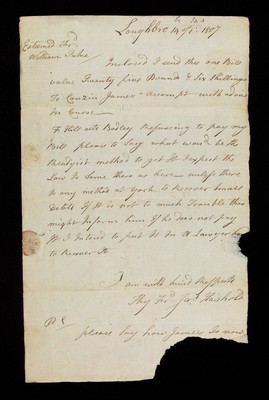 Loughbro 14th Jan 1807
Esteemed Frd
William Tuke
Inclosed I send thee one Bill
value Twenty five Pounds & Six Shillings
To Couzin James Accompt with advance
in Encor
F Hill acts Badley Refuseing to pay my
Bill please to Say what wou'd be the
Readyest method to get it I expect the
Law Is Same there as here unless there
Is any method at York to Recover Small
Debts If it is not to much Trouble thee
might Inform him If he does not pay
it I Intend to put it In a Lawyer
to Recover it
I am with kind Respects
Thy Frd Jas
PS
please Say how James Is now